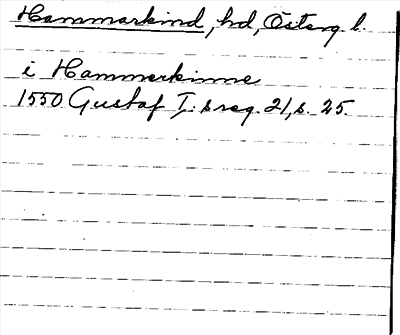 Hammarkind, hd, Österg l.
i Hammerkinne
1550 Gustaf I:s reg. 21, s. 25.